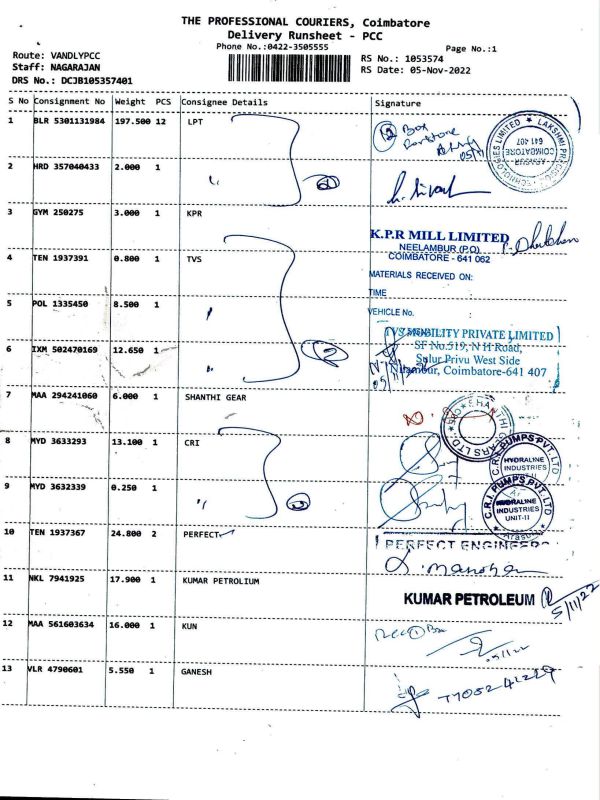 THE PROFESSIONAL COURIERS, Coimbatore
Delivery Runsheet - PCC
Phone No.:0422-3505555
Page No.:1
Route: VANDLYPCC
Staff: NAGARAJAN
DRS No.: DCJB105357401
RS No.: 1053574
RS Date: 05-Nov-2022
S No Consignment No Weight PCS Consignee Details Signature
1 BLR 5301131984 197.500 12 LPT
Box
LAKSHMI
TECHNOLOGIES LIMITED
ARASUR
COIMBATORE
641 407
2 HRD 357040433 2.000 1 "
3 GYM 250275 3.000 1 KPR
K.P.R MILL LIMITED
NEELAMBUR.(P.O)
COIMBATORE - 641 062
4 TEN 1937391 0.800 1 TVS
MATERIALS RECEIVED ON:
TIME
5 POL 1335450 8.500 1 "
VEHICLE No.
TVS MOBILITY PRIVATE LIMITED
SF No.519, N H Road,
6 IXM 502470169 12.650 1 "
Sulur Privu West Side
Coimbatore-641 407
7 MAA 294241060 6.000 1 SHANTHI GEAR
SHANTHI GEARS LTD.
8 MYD 3633293 13.100 1 CRI
C.R.I. PUMPS PVT. LTD
HYDRALINE
INDUSTRIES
9 MYD 3632339 0.250 1 "
C.R.I. PUMPS PVT. LTD
HYDRALINE
INDUSTRIES
UNIT-II
Arasur
10 TEN 1937367 24.800 2 PERFECT
PERFECT ENGINEERS
11 NKL 7941925 17.900 1 KUMAR PETROLIUM
KUMAR PETROLEUM
5/11/22
12 MAA 561603634 16.000 1 KUN
13 VLR 4790601 5.550 1 GANESH